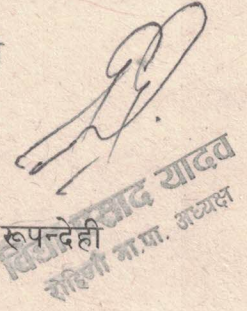 रूपन्देही
प्रसाद यादव
रोहिणी गा.पा. अध्यक्ष